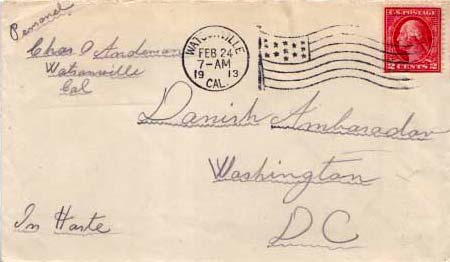 Personal
Chas O Anderson
Watsonville
Cal
WATSONVILLE
FEB 24
7-AM
1913
CAL.
U.S. POSTAGE
2 CENTS 2
Danish Ambasador
Washington
D C
In Haste